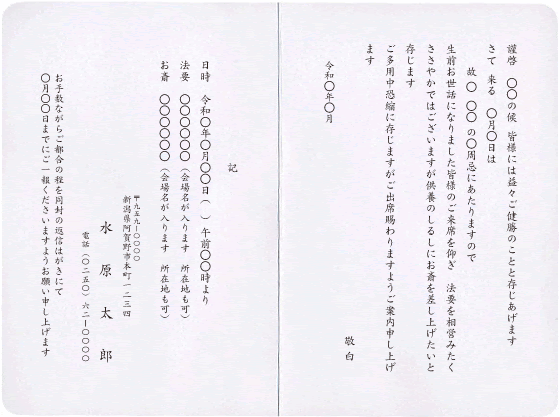 謹啓 〇〇の候 皆様には益々ご健勝のことと存じあげます
さて 来る 〇月〇日は
故〇 〇〇の〇周忌にあたりますので
生前お世話になりました皆様のご来席を仰ぎ 法要を相営みたく
ささやかではございますが供養のしるしにお斎を差し上げたいと
存じます
ご多用中恐縮に存じますがご出席賜わりますようご案内申し上げ
ます
敬白
令和〇年〇月
記
日時 令和〇年〇月〇〇日( )午前〇〇時より
法要 〇〇〇〇〇〇(会場名が入ります 所在地も可)
お斎 〇〇〇〇〇〇(会場名が入ります 所在地も可)
〒九五九ー〇〇〇〇
新潟県阿賀野市本町一二三四
水原太郎
電話(〇二五〇)六二ー〇〇〇〇
お手数ながらご都合の程を同封の返信はがきにて
〇月〇〇日までにご一報くださいますようお願い申し上げます